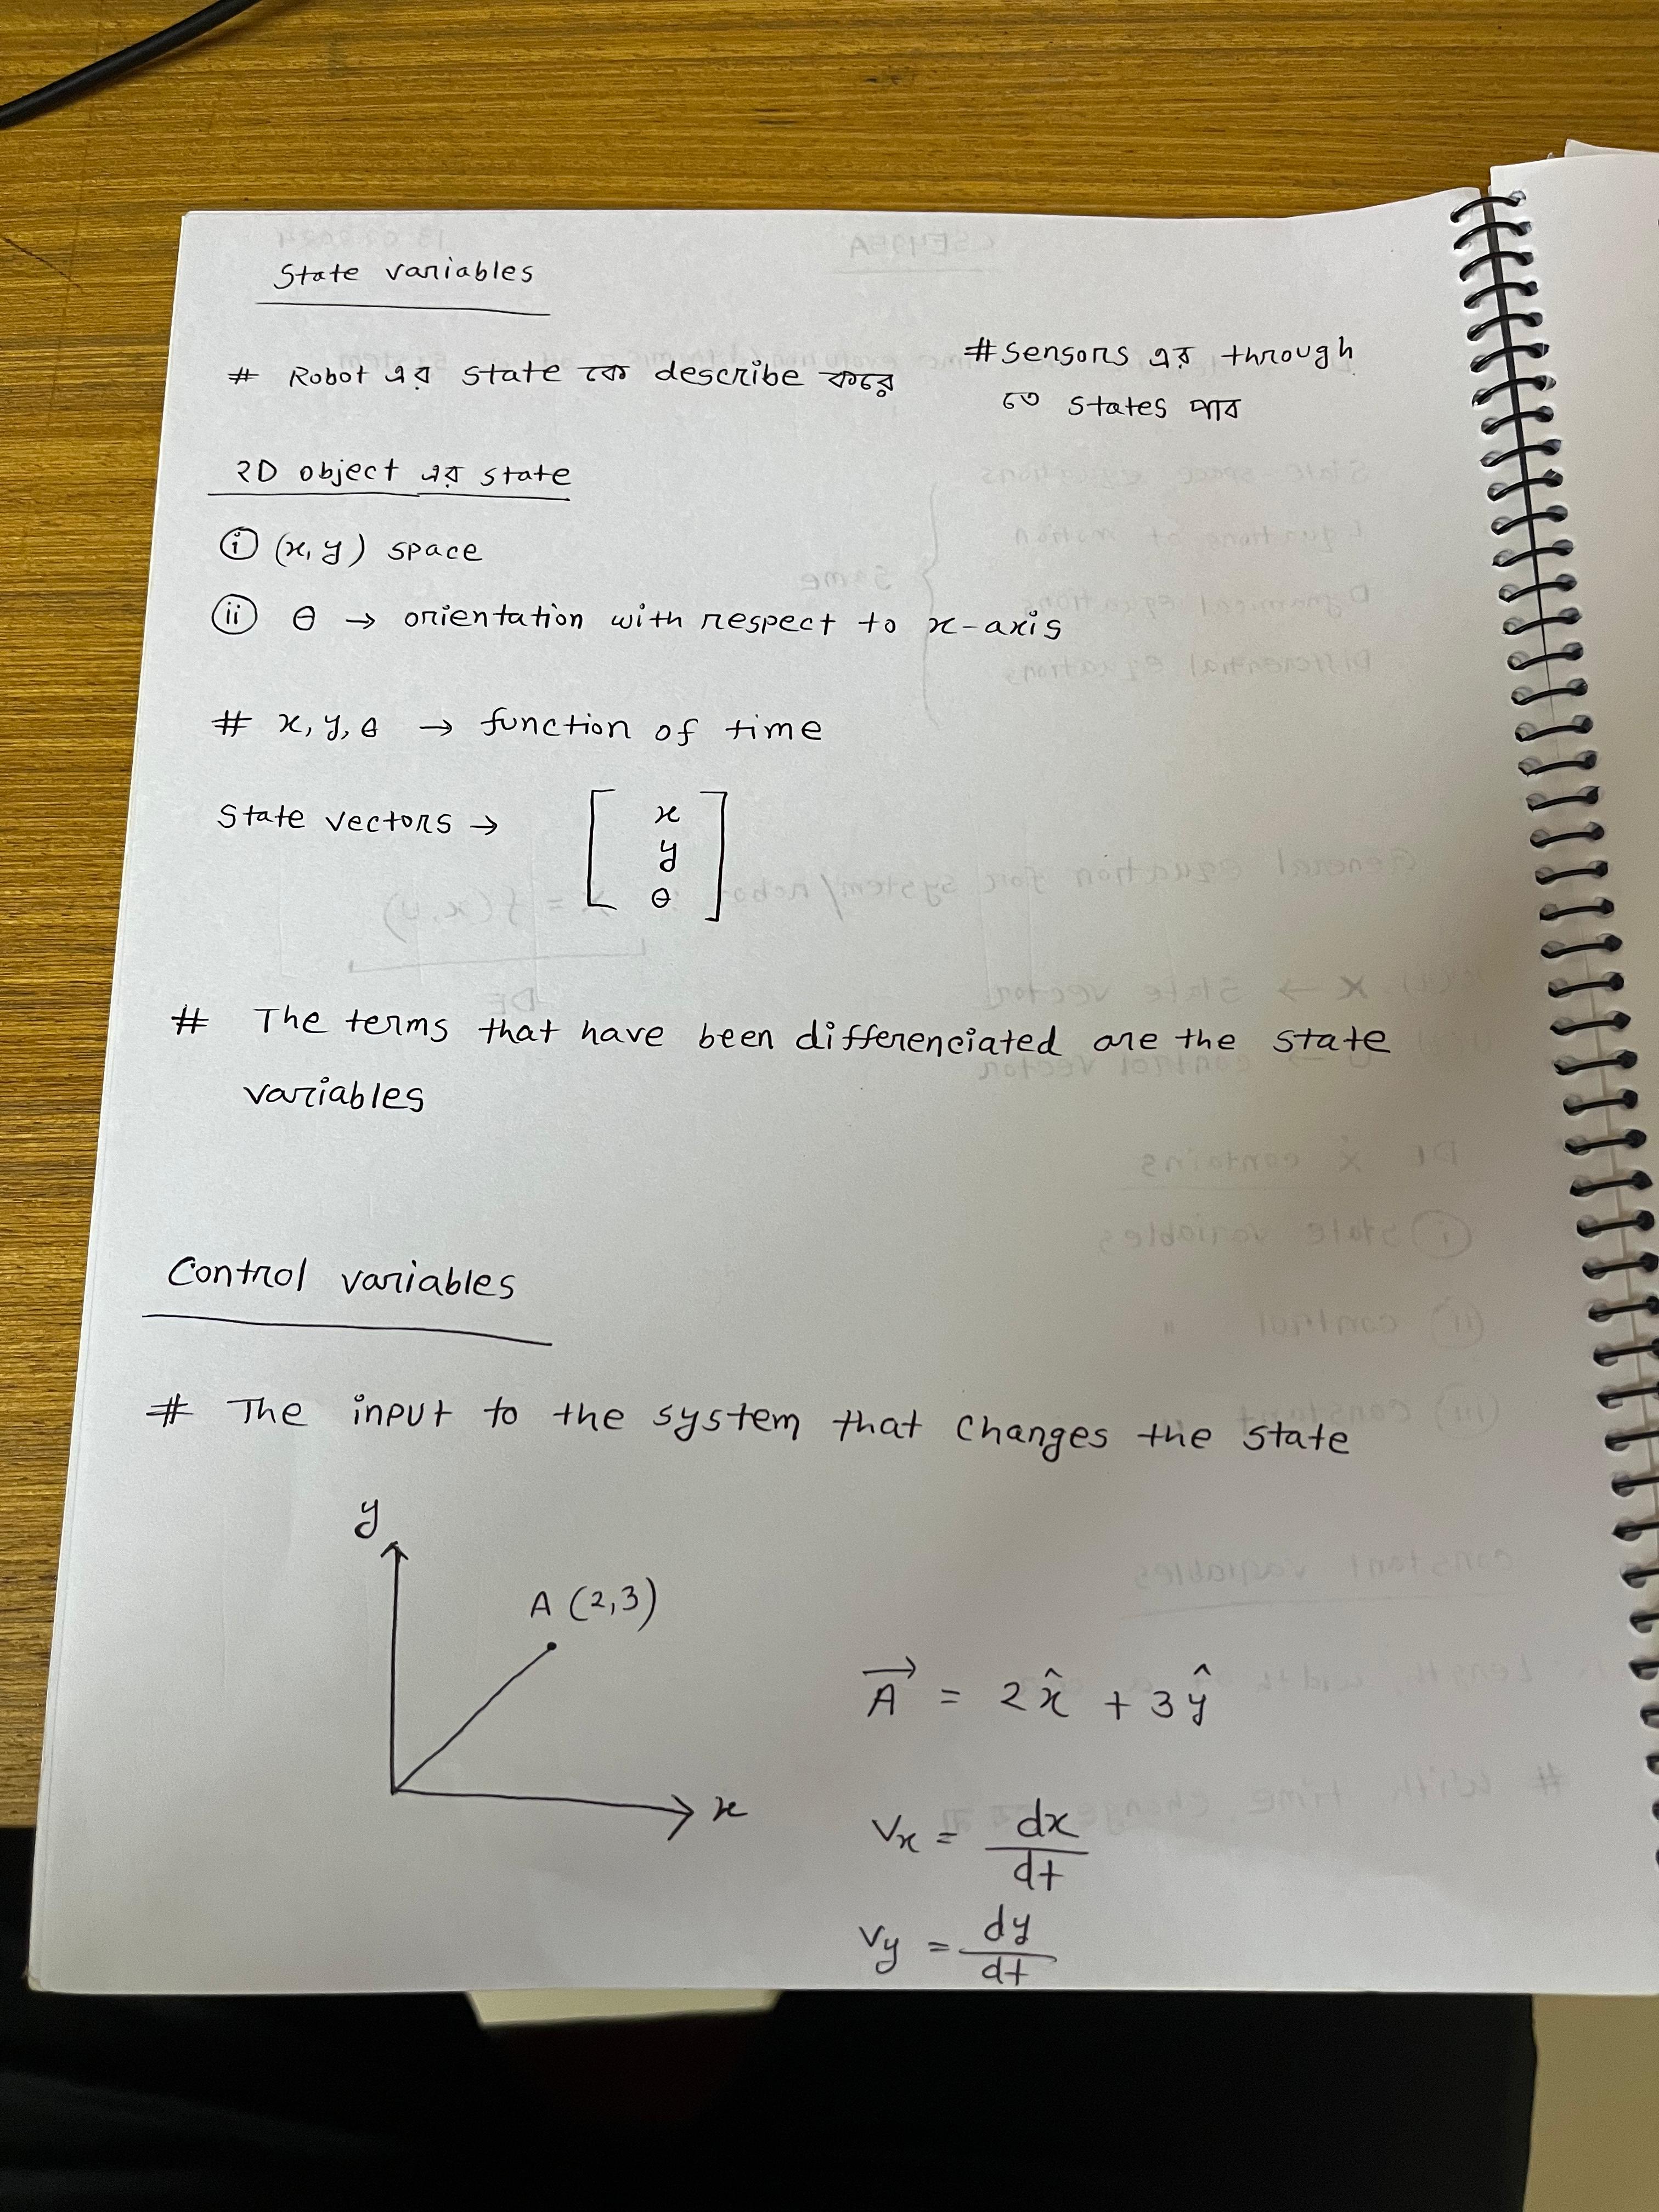 State variables
# Robot এর state কে describe করে
# Sensors এর through
তে states পাব
2D object এর state
(i) (x, y) space
(ii) θ → orientation with respect to x-axis
# x, y, θ → function of time
State vectors → [ x
y
θ ]
# The terms that have been differenciated are the state
variables
Control variables
# The input to the system that changes the state
y
A (2,3)
x
A⃗ = 2x̂ + 3ŷ
Vx = dx/dt
Vy = dy/dt